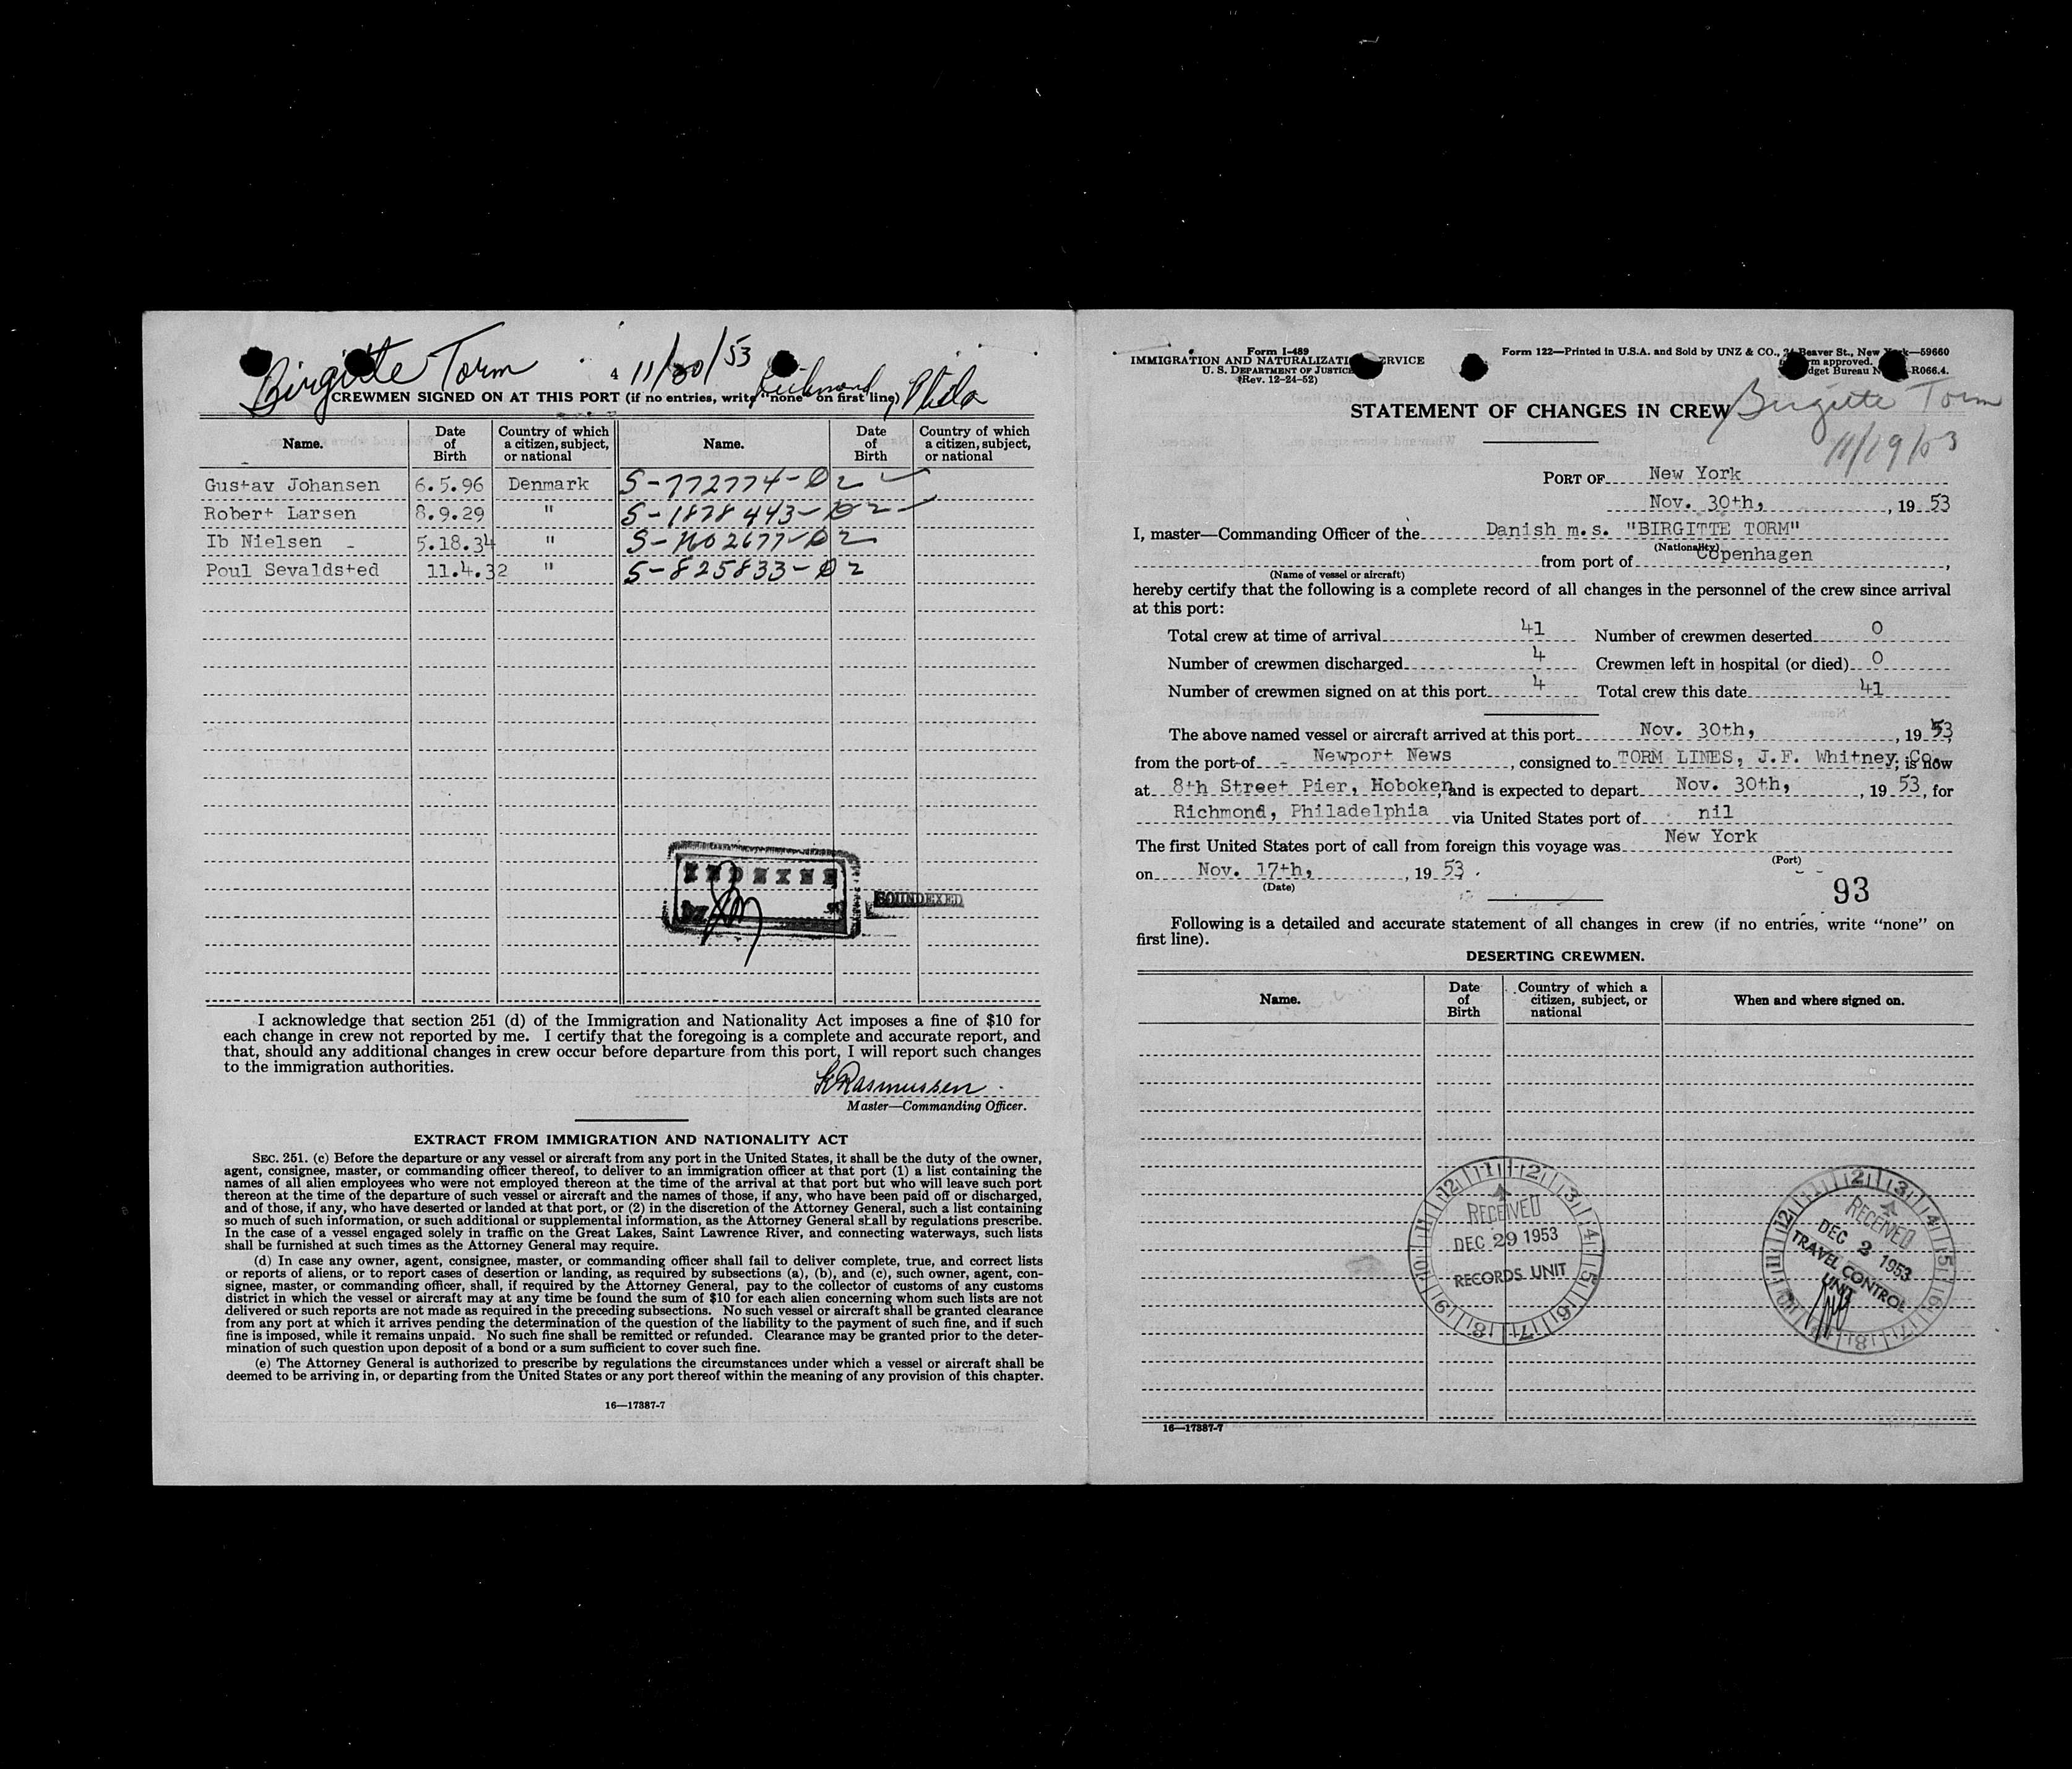 Birgitte Torm 4 11/30/53 Richmond Phila
CREWMEN SIGNED ON AT THIS PORT (if no entries, write "none" on first line)
Name. Date of Birth Country of which a citizen, subject, or national Name. Date of Birth Country of which a citizen, subject, or national
Gustav Johansen 6.5.96 Denmark S-772774-D2
Robert Larsen 8.9.29 " S-1878443-D2
Ib Nielsen 5.18.34 "
Poul Sevaldsted 11.4.32 " S-825833-D2
INDEXED
SOUNDEXED
I acknowledge that section 251 (d) of the Immigration and Nationality Act imposes a fine of $10 for
each change in crew not reported by me. I certify that the foregoing is a complete and accurate report, and
that, should any additional changes in crew occur before departure from this port, I will report such changes
to the immigration authorities.
K Rasmussen
Master—Commanding Officer.
EXTRACT FROM IMMIGRATION AND NATIONALITY ACT
SEC. 251. (c) Before the departure or any vessel or aircraft from any port in the United States, it shall be the duty of the owner,
agent, consignee, master, or commanding officer thereof, to deliver to an immigration officer at that port (1) a list containing the
names of all alien employees who were not employed thereon at the time of the arrival at that port but who will leave such port
thereon at the time of the departure of such vessel or aircraft and the names of those, if any, who have been paid off or discharged,
and of those, if any, who have deserted or landed at that port, or (2) in the discretion of the Attorney General, such a list containing
so much of such information, or such additional or supplemental information, as the Attorney General shall by regulations prescribe.
In the case of a vessel engaged solely in traffic on the Great Lakes, Saint Lawrence River, and connecting waterways, such lists
shall be furnished at such times as the Attorney General may require.
(d) In case any owner, agent, consignee, master, or commanding officer shall fail to deliver complete, true, and correct lists
or reports of aliens, or to report cases of desertion or landing, as required by subsections (a), (b), and (c), such owner, agent, con-
signee, master, or commanding officer, shall, if required by the Attorney General, pay to the collector of customs of any customs
district in which the vessel or aircraft may at any time be found the sum of $10 for each alien concerning whom such lists are not
delivered or such reports are not made as required in the preceding subsections. No such vessel or aircraft shall be granted clearance
from any port at which it arrives pending the determination of the question of the liability to the payment of such fine, and if such
fine is imposed, while it remains unpaid. No such fine shall be remitted or refunded. Clearance may be granted prior to the deter-
mination of such question upon deposit of a bond or a sum sufficient to cover such fine.
(e) The Attorney General is authorized to prescribe by regulations the circumstances under which a vessel or aircraft shall be
deemed to be arriving in, or departing from the United States or any port thereof within the meaning of any provision of this chapter.
16—17387-7
Form I-489
IMMIGRATION AND NATURALIZATI ERVICE
U. S. DEPARTMENT OF JUSTICE
(Rev. 12-24-52)
Form 122—Printed in U.S.A. and Sold by UNZ & CO., 24 Beaver St., New York—59660
rm approved.
dget Bureau N -R066.4.
STATEMENT OF CHANGES IN CREW Birgitte Torm
PORT OF New York
Nov. 30th, , 19 53
I, master—Commanding Officer of the Danish m.s. "BIRGITTE TORM"
(Nationality)
from port of Copenhagen ,
(Name of vessel or aircraft)
hereby certify that the following is a complete record of all changes in the personnel of the crew since arrival
at this port:
Total crew at time of arrival 41 Number of crewmen deserted 0
Number of crewmen discharged 4 Crewmen left in hospital (or died) 0
Number of crewmen signed on at this port 4 Total crew this date 41
The above named vessel or aircraft arrived at this port Nov. 30th, , 19 53,
from the port of Newport News , consigned to TORM LINES, J.F. Whitney Co. ; is now
at 8th Street Pier, Hoboken, and is expected to depart Nov. 30th, , 19 53, for
Richmond, Philadelphia via United States port of nil
The first United States port of call from foreign this voyage was New York
(Port)
on Nov. 17th, , 19 53 .
(Date)
93
Following is a detailed and accurate statement of all changes in crew (if no entries, write "none" on
first line).
DESERTING CREWMEN.
Name. Date of Birth Country of which a citizen, subject, or national When and where signed on.
RECEIVED
DEC 29 1953
RECORDS UNIT
RECEIVED
DEC 2 1953
TRAVEL CONTROL
UNIT
16—17387-7